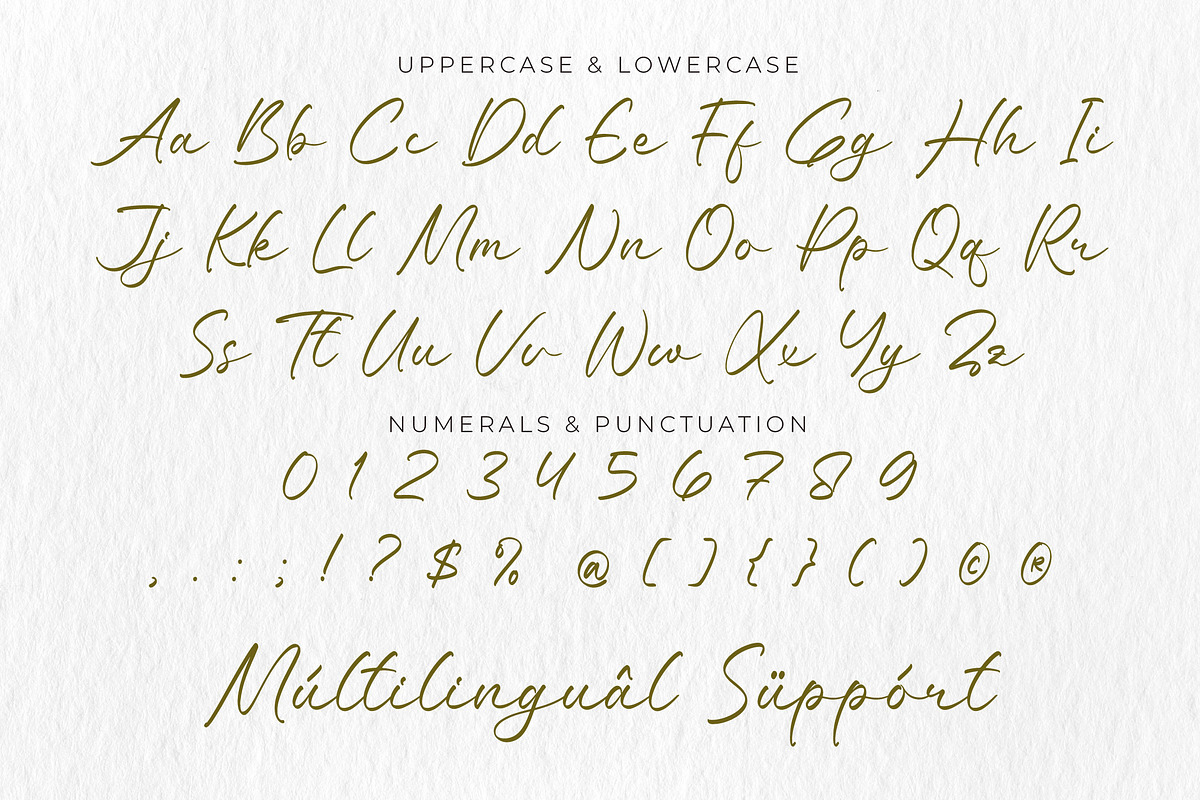 UPPERCASE & LOWERCASE
Aa Bb Cc Dd Ee Ff Gg Hh Ii
Jj Kk Ll Mm Nn Oo Pp Qq Rr
Ss Tt Uu Vv Ww Xx Yy Zz
NUMERALS & PUNCTUATION
0 1 2 3 4 5 6 7 8 9
, . : ; ! ? $ % @ [ ] { } ( ) © ®
Múltilinguâl Süppórt